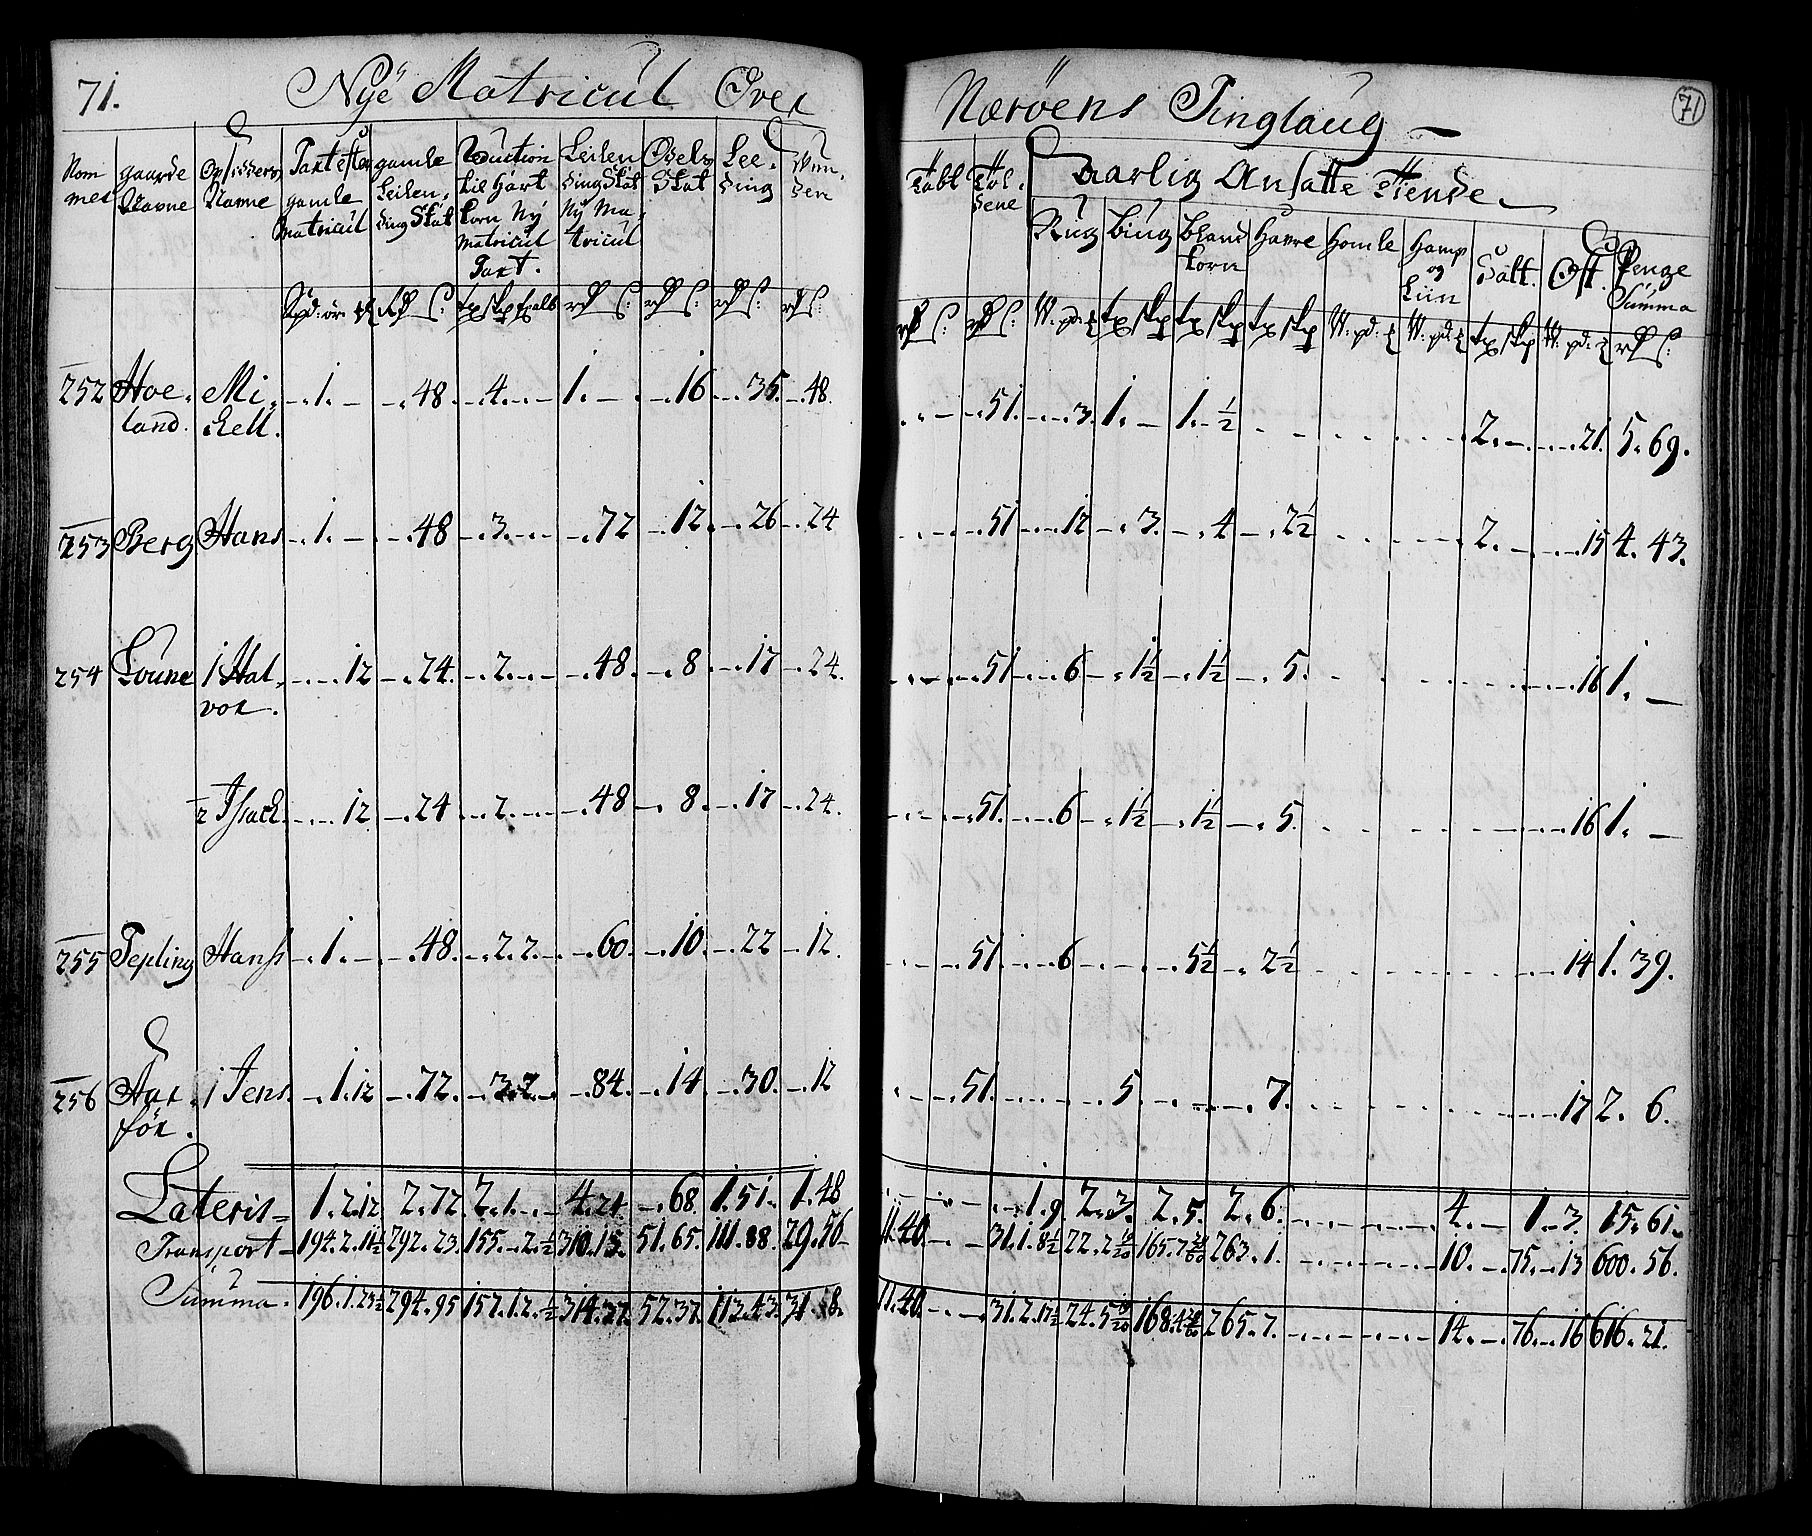 71. Nye Matricul Over Nærøens Tinglaug 71
Nom mer | gaarde Navne | Opsidders Navne | Taxt efter gamle Matricul | gamle Leilen, ding Skat | Reduction til Hart korn Ny Matricul Taxt. | Leilen ding Skat Ny Ma, tricul | Odels Skat | Lee, ding | Tabl | Tol, dene | Aarlig Ansatte Tiende
Rug | Biug | bland korn | Havre | Homle | Hamp og Liin | Salt. | Ost. | Penge Summa
252 Hoe, Mi, 1. 48. 4. 1. 16 35. 48. 51. 3. 1. 1. ½ 2. 21. 5. 69.
land. kell.
253 Berg Hans 1. 48 3. 72 12. 26 24 51 12 3. 4 2½ 2. 15 4. 43.
254 Loune 1 Hal, 12 24. 2. 48. 8. 17 24. 51 6 1½ 1½ 5. 16 1.
vor.
2 Isack. 12 24 2. 48 8. 17 24. 51. 6 1½ 1½ 5. 16 1.
255 Tepling Hans 1. 48. 2. 2. 60. 10. 22 12. 51. 6 5½ 2½ 14 1. 39.
256 Aar, 1 Jens. 1. 12 72. 3. 2. 84. 14 30. 12 51. 5. 7. 17 2. 6.
för.
Lateris 1. 2. 12 2. 72. 2. 1. 4. 24. 68. 1. 51. 1. 48 1. 9 2. 3. 2. 5. 2. 6. 4. 1. 3. 15. 61.
Transport 194. 2. 11½ 292. 23. 155. 2. ½ 310. 15. 51. 65. 111. 88. 29. 56 11. 40. 31. 1. 8½ 263. 1. 10. 75. 13 600. 56.
Summa. 196. 1. 23½ 294. 95 157. 1. 2. ½ 52. 37. 113. 43. 31. 8. 11. 40. 31. 2. 17½ 265. 7. 14. 76. 16 616. 21.